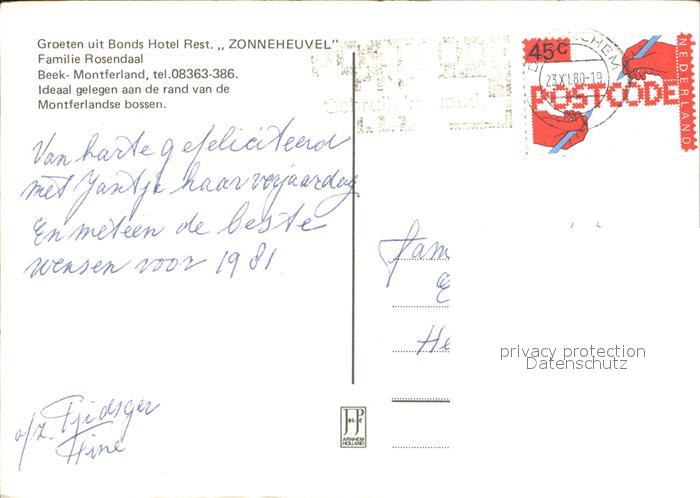 Groeten uit Bonds Hotel Rest. „ZONNEHEUVEL"
Familie Rosendaal
Beek- Montferland, tel.08363-386.
Ideaal gelegen aan de rand van de
Montferlandse bossen.
Van harte gefeliciteerd
met Jantje haar verjaardag
En meteen de beste
wensen voor 1981.
45c
NEDERLAND
POSTCODE
CHEM
80-19
Fam
He
privacy protection
Datenschutz
ARNHEM
HOLLAND
Tine